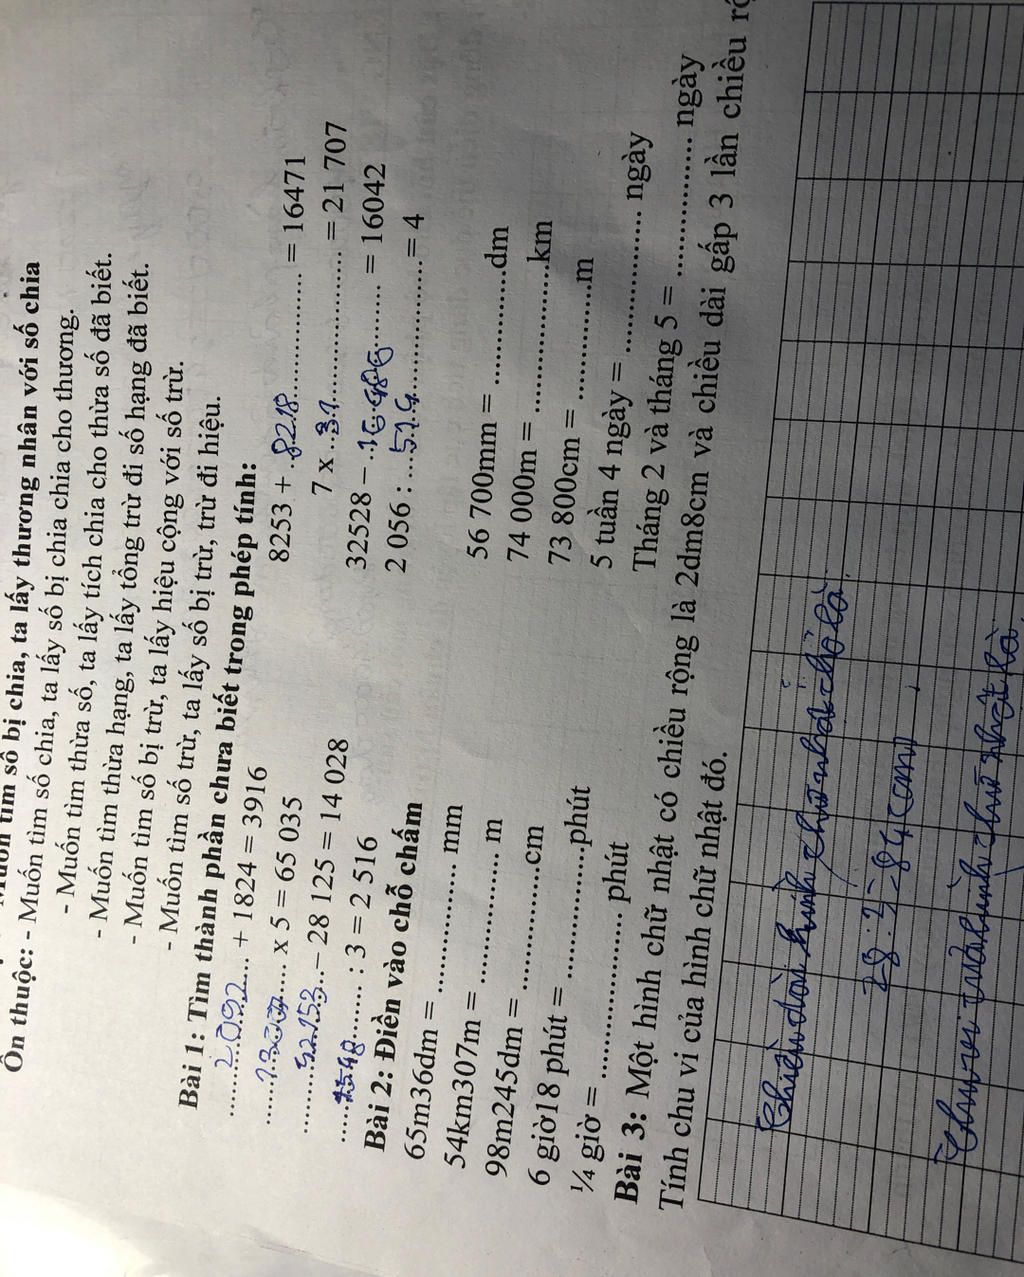 tìm số bị chia, ta lấy thương nhân với số chia
Ôn thuộc: - Muốn tìm số chia, ta lấy số bị chia chia cho thương.
- Muốn tìm thừa số, ta lấy tích chia cho thừa số đã biết.
- Muốn tìm thừa hạng, ta lấy tổng trừ đi số hạng đã biết.
- Muốn tìm số bị trừ, ta lấy hiệu cộng với số trừ.
- Muốn tìm số trừ, ta lấy số bị trừ, trừ đi hiệu.
Bài 1: Tìm thành phần chưa biết trong phép tính:
....2.092.... + 1824 = 3916 8253 + ..8218............ = 16471
.................. x 5 = 65 035 7 x ..31.................. = 21 707
........42.153... – 28 125 = 14 028 32528 – ..16.486......... = 16042
....7548......... : 3 = 2 516 2 056 : ....514............... = 4
Bài 2: Điền vào chỗ chấm
65m36dm = .................. mm 56 700mm = ..................dm
54km307m = .................. m 74 000m = ..................km
98m245dm = ..................cm 73 800cm = ..................m
6 giờ18 phút = ..................phút 5 tuần 4 ngày = .................. ngày
¼ giờ = .................. phút Tháng 2 và tháng 5 = .................. ngày
Bài 3: Một hình chữ nhật có chiều rộng là 2dm8cm và chiều dài gấp 3 lần chiều
Tính chu vi của hình chữ nhật đó.
Chiều dài hình chữ nhật
84 (cm)
Chu vi của hình chữ nhật là